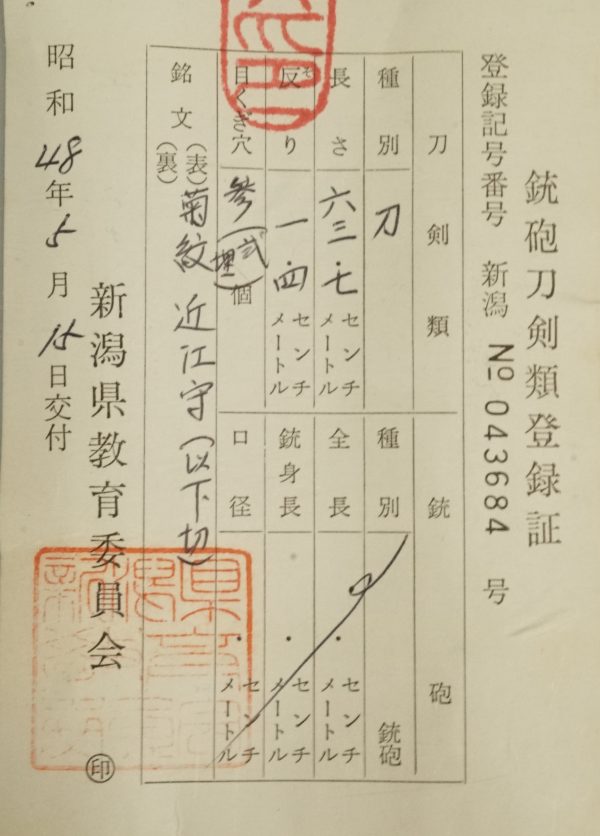 銃砲刀剣類登録証
登録記号番号 新潟 № 043684 号
刀剣類
銃砲
種別 刀
種別 銃砲
長さ 六三・七 センチメートル
全長 ・ センチメートル
反り そ 一・四 センチメートル
銃身長 ・ センチメートル
目くぎ穴 参(弐埋)個
口径 ・ センチメートル
銘文(表)菊紋 近江守(以下切)
(裏)
新潟県教育委員会 ㊞
昭和48年5月15日交付